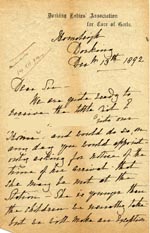 Dorking Ladies' Association
for Care of Girls.
Holmleigh
Dorking
Decr 13th 1892
Dear Sir
We are quite ready to
receive the little Girl
into our
"Home", and would do so on
any day you would appoint
only asking for notice of the
time of her arrival that
she may be met at the
Station. She is younger than
the children we normally take
but we will make an exception